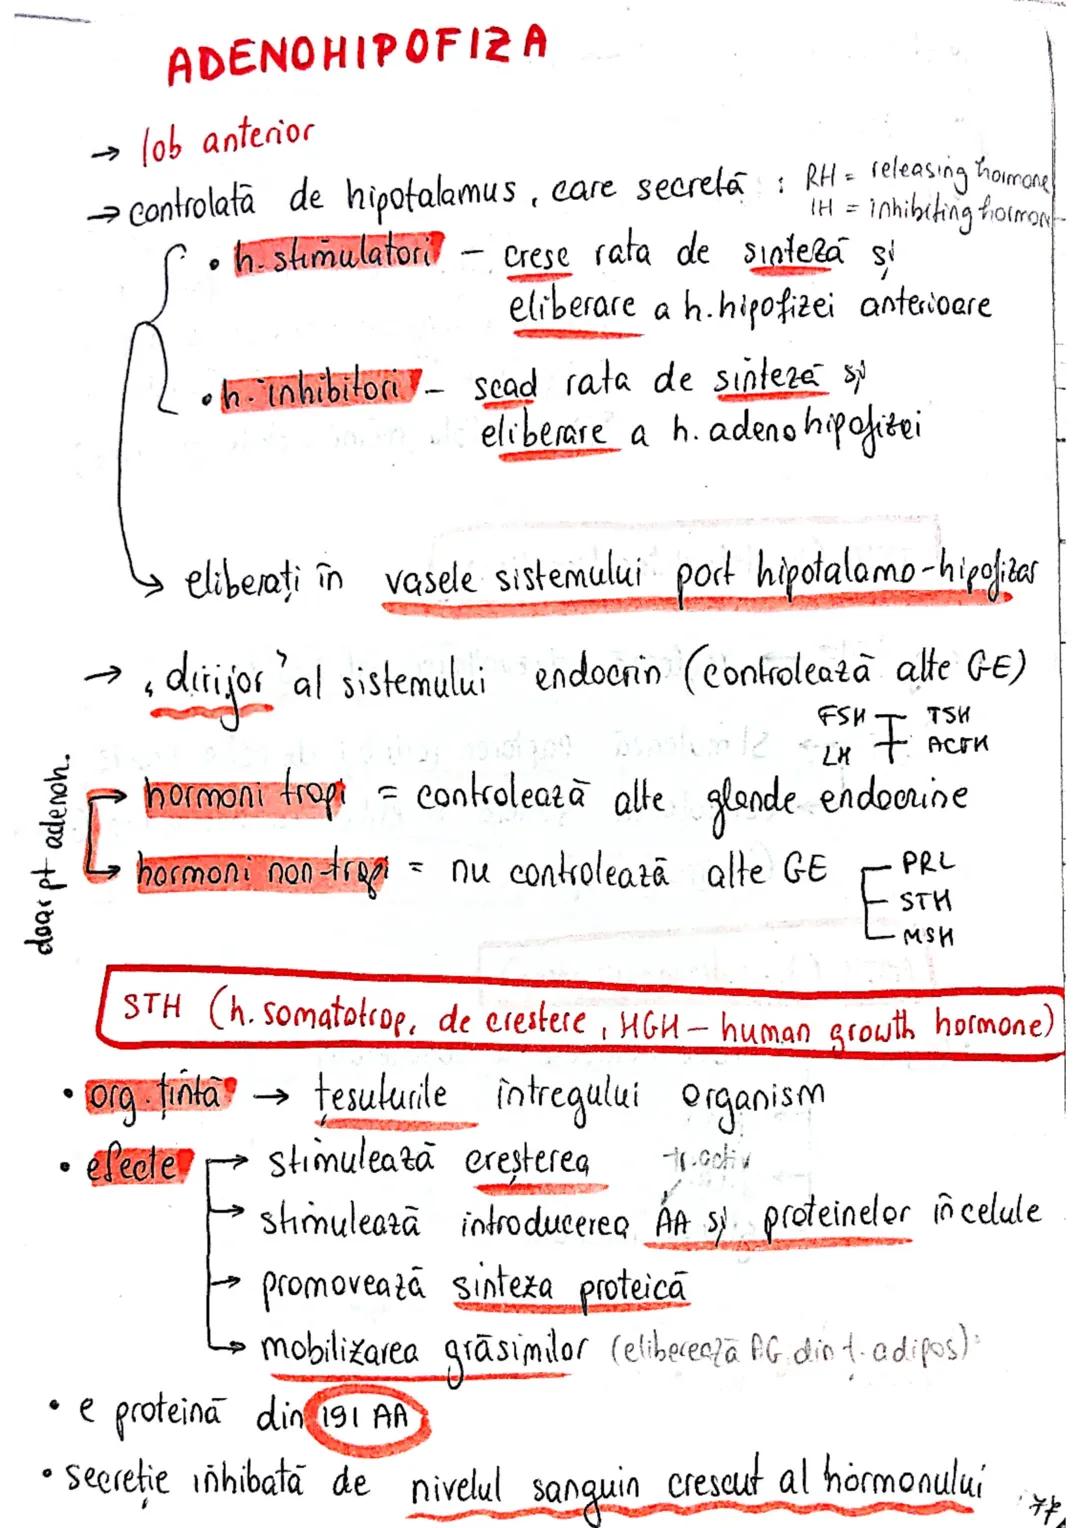 ADENOHIPOFIZA
→ lob anterior
→ controlată de hipotalamus, care secretă : RH = releasing hormone
IH = inhibiting hormon
• h. stimulatori – cresc rata de sinteză și
eliberare a h. hipofizei anterioare
• h. inhibitori – scad rata de sinteză și
eliberare a h. adenohipofizei
→ eliberați în vasele sistemului port hipotalamo-hipofizar
→ „dirijor” al sistemului endocrin (controlează alte GE)
FSH TSH
LH ACTH
doar pt adenoh.
→ hormoni tropi = controlează alte glande endocrine
→ hormoni non-tropi = nu controlează alte GE
PRL
STH
MSH
STH (h. somatotrop, de crestere, HGH – human growth hormone)
• org. țintă → țesuturile întregului organism
• efecte → stimulează creșterea
tr. activ
→ stimulează introducerea AA și proteinelor în celule
→ promovează sinteza proteică
→ mobilizarea grăsimilor (eliberează AG din ț. adipos)
• e proteină din 191 AA
• secreție inhibată de nivelul sanguin crescut al hormonului